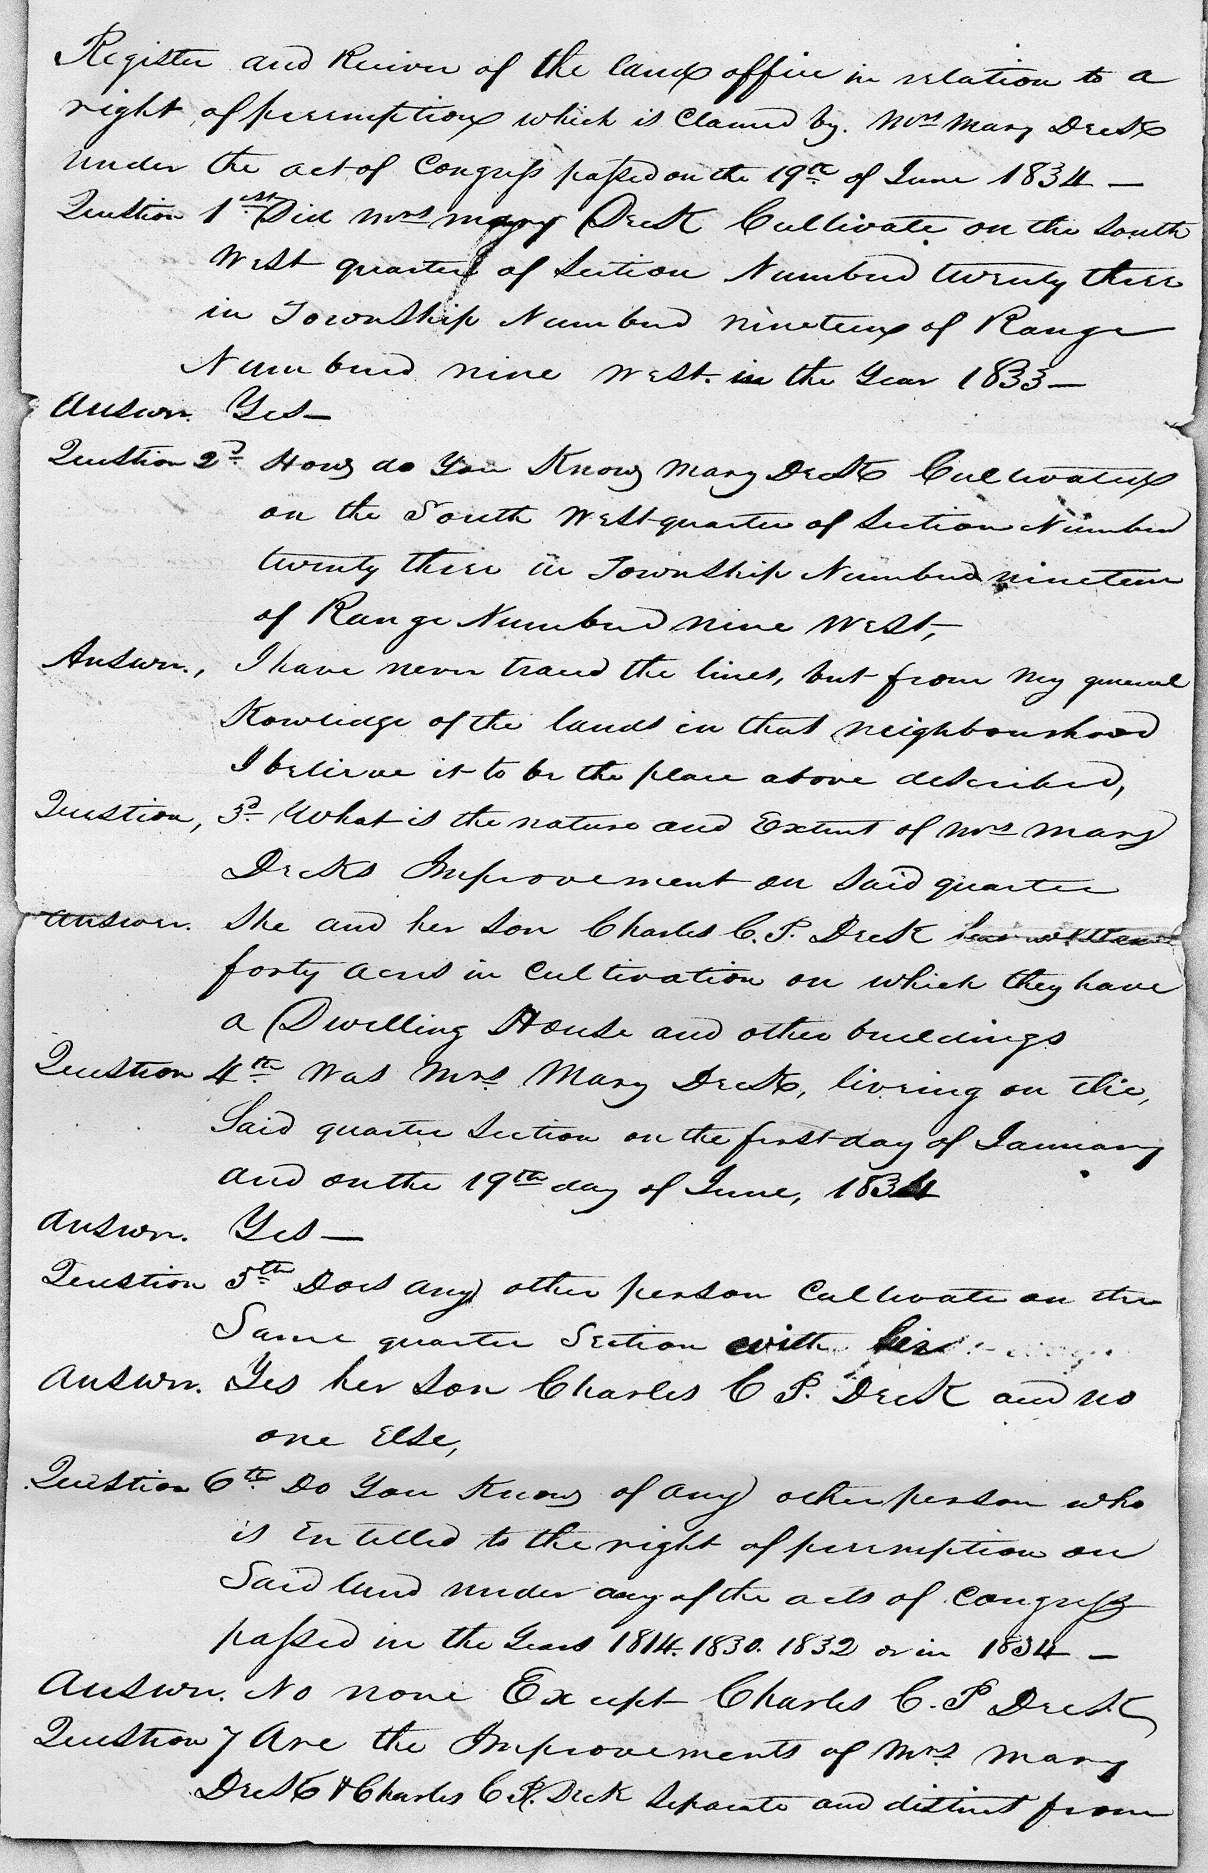 Register and Reciver of the land office in relation to a
right of preemption which is Claimed by Mrs Mary Deck
under the act of Congress passed on the 19th of June 1834 —
Question 1st Did Mrs Mary Deck Cultivate on the South
West quarter of Section Numbered twenty three
in Township Numbered nineteen of Range
Numbered nine West. in the Year 1833 —
Answer. Yes —
Question 2d How do You Know Mary Deck Cultivated
on the South West quarter of Section Numbered
twenty three in Township Numbered nineteen
of Range Numbered nine West,
Answer., I have never traced the lines, but from my general
Kowlidge of the lands in that neighbourhood
I believe it to be the place above described,
Question, 3d What is the nature and Extent of Mrs Mary
Decks Improvement on Said quarter
Answer. She and her Son Charles C. P. Deck
forty acres in Cultivation on which they have
a Dwelling House and other buildings
Question 4th Was Mrs Mary Deck, liveing on the,
Said quarter Section on the first day of January
and on the 19th day of June, 1834
Answer. Yes —
Question 5th Does any other person Cultivate on the
Same quarter Section with her
Answer. Yes her Son Charles C P. Deck and no
one Else,
Question 6th Do You Know of any other person who
is Entitled to the right of preemption on
Said land under any of the acts of Congress
passed in the Years 1814. 1830. 1832 or in 1834 —
Answer. No none Except Charles C. P Deck
Question 7 Are the Improvements of Mrs Mary
Deck & Charles C P. Deck Separate and distinct from